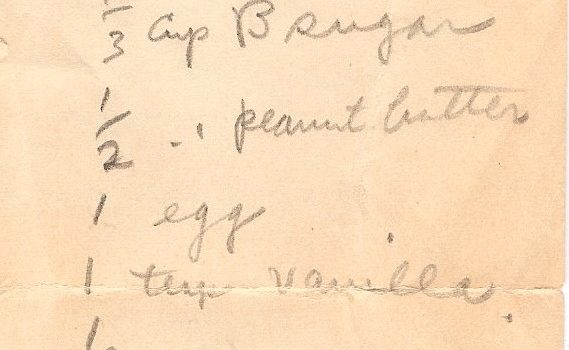 1/3 cup B sugar
1/2 " peanut butter
1 egg
1 tsp vanilla.
1